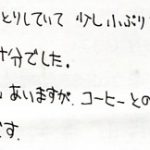 とりしていて 少し小ぶり
十分でした。
あいますが、コーヒーとの
です.